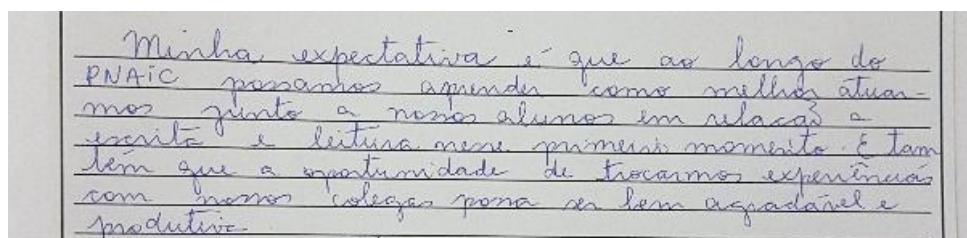 Minha expectativa é que ao longo do
PNAIC possamos aprender como melhor atuar-
mos junto a nossos alunos em relação a
escrita e leitura nesse primeiro momento. E tam
bém que a oportunidade de trocarmos experiências
com nossos colegas possa ser bem agradável e
produtiva.